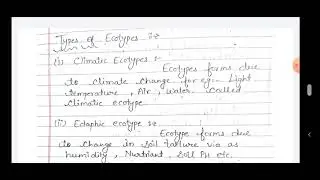 Types of Ecotypes :-
(i) Climatic Ecotypes :-
Ecotypes forms due
to climate change for eg:- Light
temperature, Air, water. called
climatic ecotype.
(ii) Edaphic ecotype :-
Ecotype forms due
to change in soil texture via as
humidity, Nutriant, Soil PH etc.